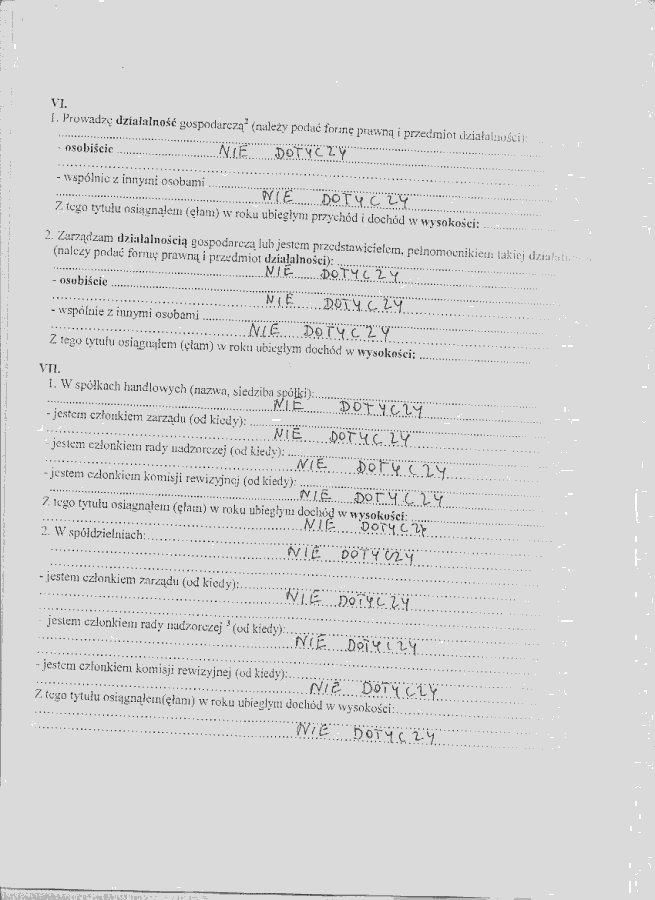 VI.
1. Prowadzę działalność gospodarczą² (należy podać formę prawną i przedmiot działalności):
- osobiście
NIE DOTYCZY
- wspólnie z innymi osobami
NIE DOTYCZY
Z tego tytułu osiągnąłem (ęłam) w roku ubiegłym przychód i dochód w wysokości:
2. Zarządzam działalnością gospodarczą lub jestem przedstawicielem, pełnomocnikiem takiej
(należy podać formę prawną i przedmiot działalności):
NIE DOTYCZY
- osobiście
NIE DOTYCZY
- wspólnie z innymi osobami
NIE DOTYCZY
Z tego tytułu osiągnąłem (ęłam) w roku ubiegłym dochód w wysokości:
VII.
1. W spółkach handlowych (nazwa, siedziba spółki):
NIE DOTYCZY
- jestem członkiem zarządu (od kiedy):
NIE DOTYCZY
- jestem członkiem rady nadzorczej (od kiedy):
NIE DOTYCZY
- jestem członkiem komisji rewizyjnej (od kiedy):
NIE DOTYCZY
Z tego tytułu osiągnąłem (ęłam) w roku ubiegłym dochód w wysokości:
NIE DOTYCZY
2. W spółdzielniach:
NIE DOTYCZY
- jestem członkiem zarządu (od kiedy):
NIE DOTYCZY
- jestem członkiem rady nadzorczej ³ (od kiedy):
NIE DOTYCZY
- jestem członkiem komisji rewizyjnej (od kiedy):
NIE DOTYCZY
Z tego tytułu osiągnąłem(ęłam) w roku ubiegłym dochód w wysokości:
NIE DOTYCZY